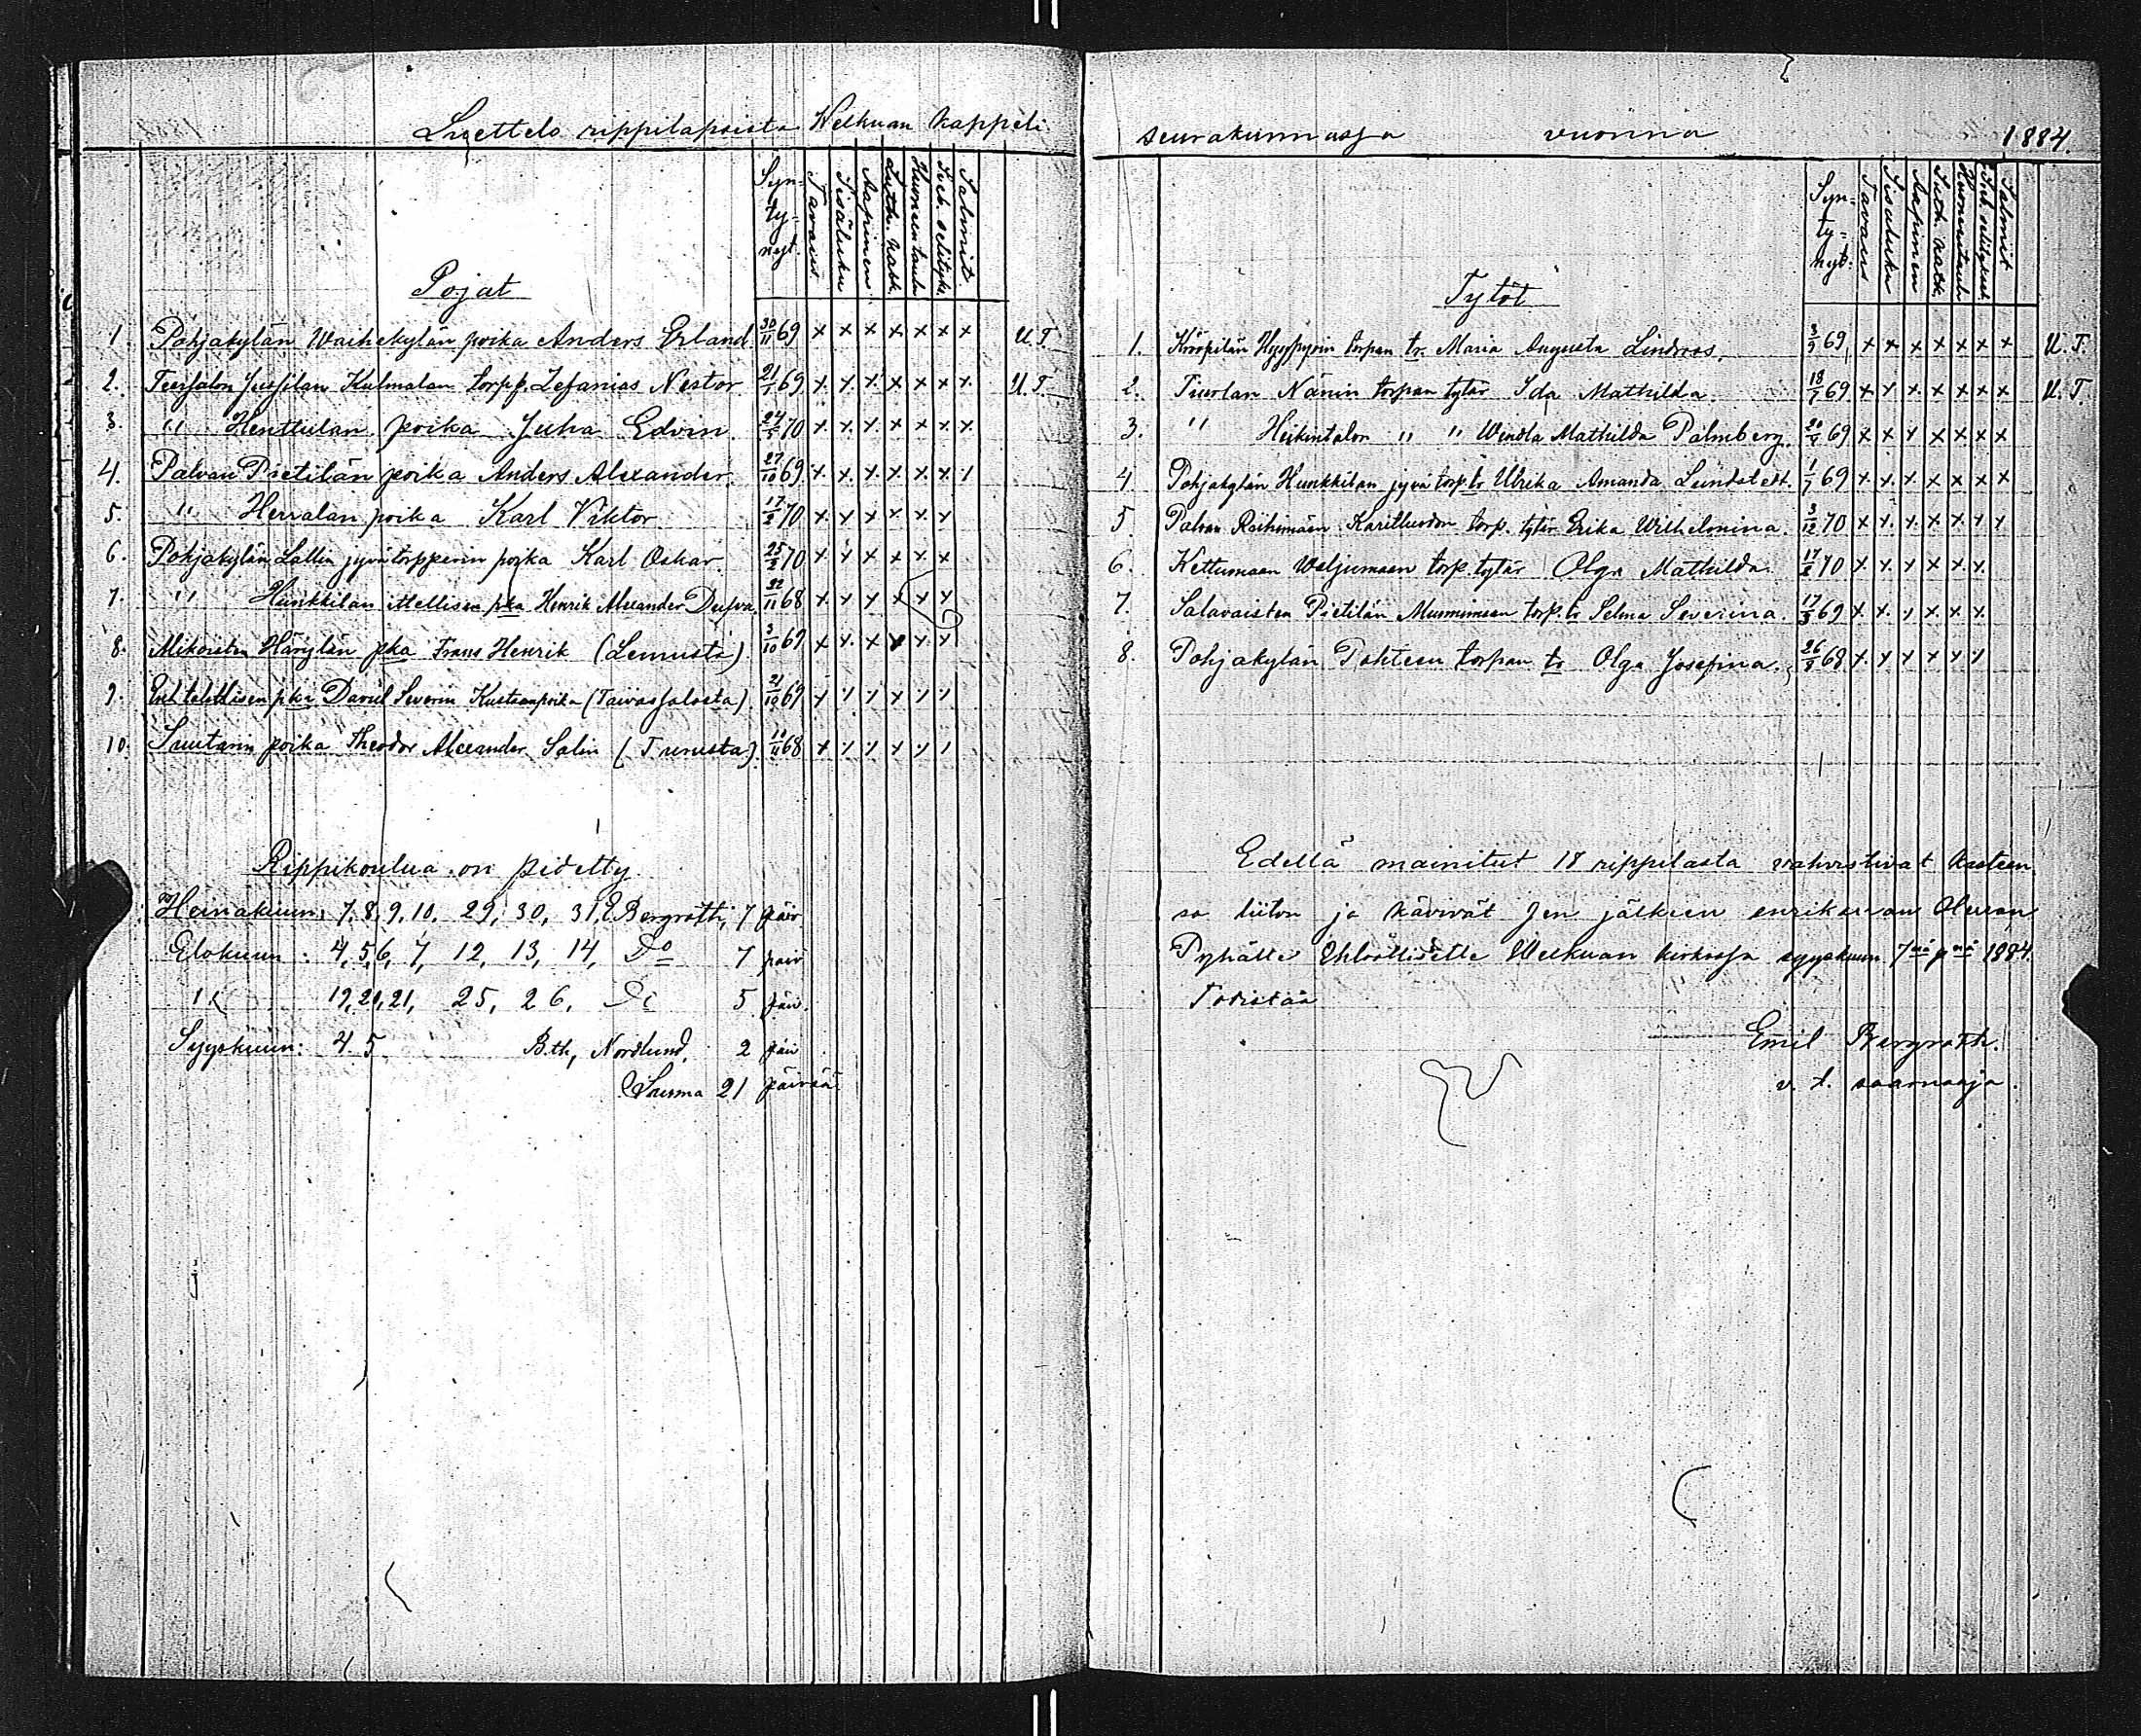 Luettelo rippilapsista Welkuan kappeli
Syn-
ty-
nyt.
Tavaus.
Sisäluku
Aapinen
Luth. Katk.
Huoneentaulu
Sveb. selityks.
Salmit.
Pojat
1. Pohjakylän Waihekylän poika Anders Erland 30/11 69 x x x x x x x U. T.
2. Teersalon Jussilan Kulmalan torpp. Zefanias Nestor 21/1 69 x x x x x x x U. T.
3. " Henttulan poika Juha Edvin 24/5 70 x x x x x x x
4. Palvan Pietilän poika Anders Alexander 27/10 69 x x x x x x /
5. " Herralan poika Karl Viktor 17/2 70 x x x x x x
6. Pohjakylän Lallin jyvätorpparin poika Karl Oskar 25/2 70 x x x x x x
7. " Hunkkilan itellisen pka Henrik Alexander Dufva 22/11 68 x x x x x x
8. Mikoisten Härjylän pka Frans Henrik (Lemusta) 3/10 69 x x x x x x
9. pka David Severin Kustaanpoika (Taivassalosta) 21/10 69 x x x x x x
10. Suutarin poika Theodor Alexander Salin (Turusta) 68 x x x x x x
Rippikoulua on pidetty
Heinäkuun: 7, 8, 9, 10. 29, 30, 31, E. Bergroth, 7 päiv.
Elokuun: 4, 5, 6, 7, 12, 13, 14, Do 7 päiv
" 19, 20, 21, 25, 26, Do 5 päiv.
Syyskuun: 4 5 B.th, Nordlund, 2 päiv
Summa 21 päivää
seurakunnassa vuonna 1884.
Syn-
ty-
nyt:
Tavaus
Sisäluku
Aapinen
Luth. Katk.
Huoneentaulu
Sveb. selitykset
Salmit
Tytöt
1. torpan tr. Maria Augusta Lindroos. 3/9 69 x x x x x x x U. T.
2. Nänin torpan tytär Ida Mathilda. 18/7 69 x x x x x x x U. T.
3. " Heikintalon " " Wendla Mathilda Palmberg. 69 x x x x x x x
4. Pohjakylän Hunkkilan jyvä torp. tr Ulrika Amanda Lundstedt. 1/7 69 x x x x x x x
5. Palvan torp. tytär Erika Wilhelmina. 3/12 70 x x x x x x x
6. Kettumaan Weljumaan torp. tytär Olga Mathilda. 17/2 70 x x x x x x
7. Salavaisten Pietilän torp. tr Selma Severina. 17/3 69 x x x x x x
8. Pohjakylän torpan tr Olga Josefina. 26/8 68 x x x x x x
Edellä mainitut 18 rippilasta vahvistivat kasteen
sa liiton ja kävivät sen jälkeen ensikerran Herran
Pyhälle Ehtoolliselle Welkuan kirkossa syyskuun 7nä pnä 1884.
Todistaa
Emil Bergroth.
v. t. saarnaaja.